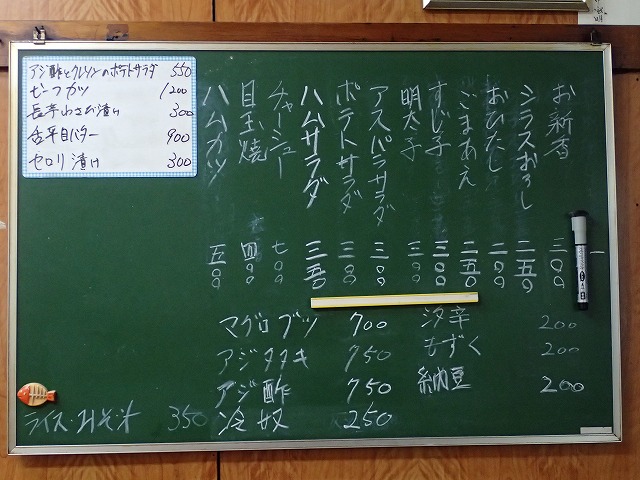 アジ酢とクレソンのポテトサラダ 550
ビーフカツ 1200
長芋わさび漬け 300
舌平目バター 900
セロリ漬け 300
お新香 二〇〇
シラスおろし 二五〇
おひたし 二〇〇
ごまあえ 二五〇
すじ子 三〇〇
明太子 三〇〇
アスパラサラダ 三〇〇
ポテトサラダ 三〇〇
ハムサラダ 三五〇
チャーシュー 七〇〇
目玉焼 四〇〇
ハムカツ 五〇〇
マグロブツ 700
アジタタキ 750
アジ酢 750
冷奴 250
汐辛 200
もずく 200
納豆 200
ライス・みそ汁 350